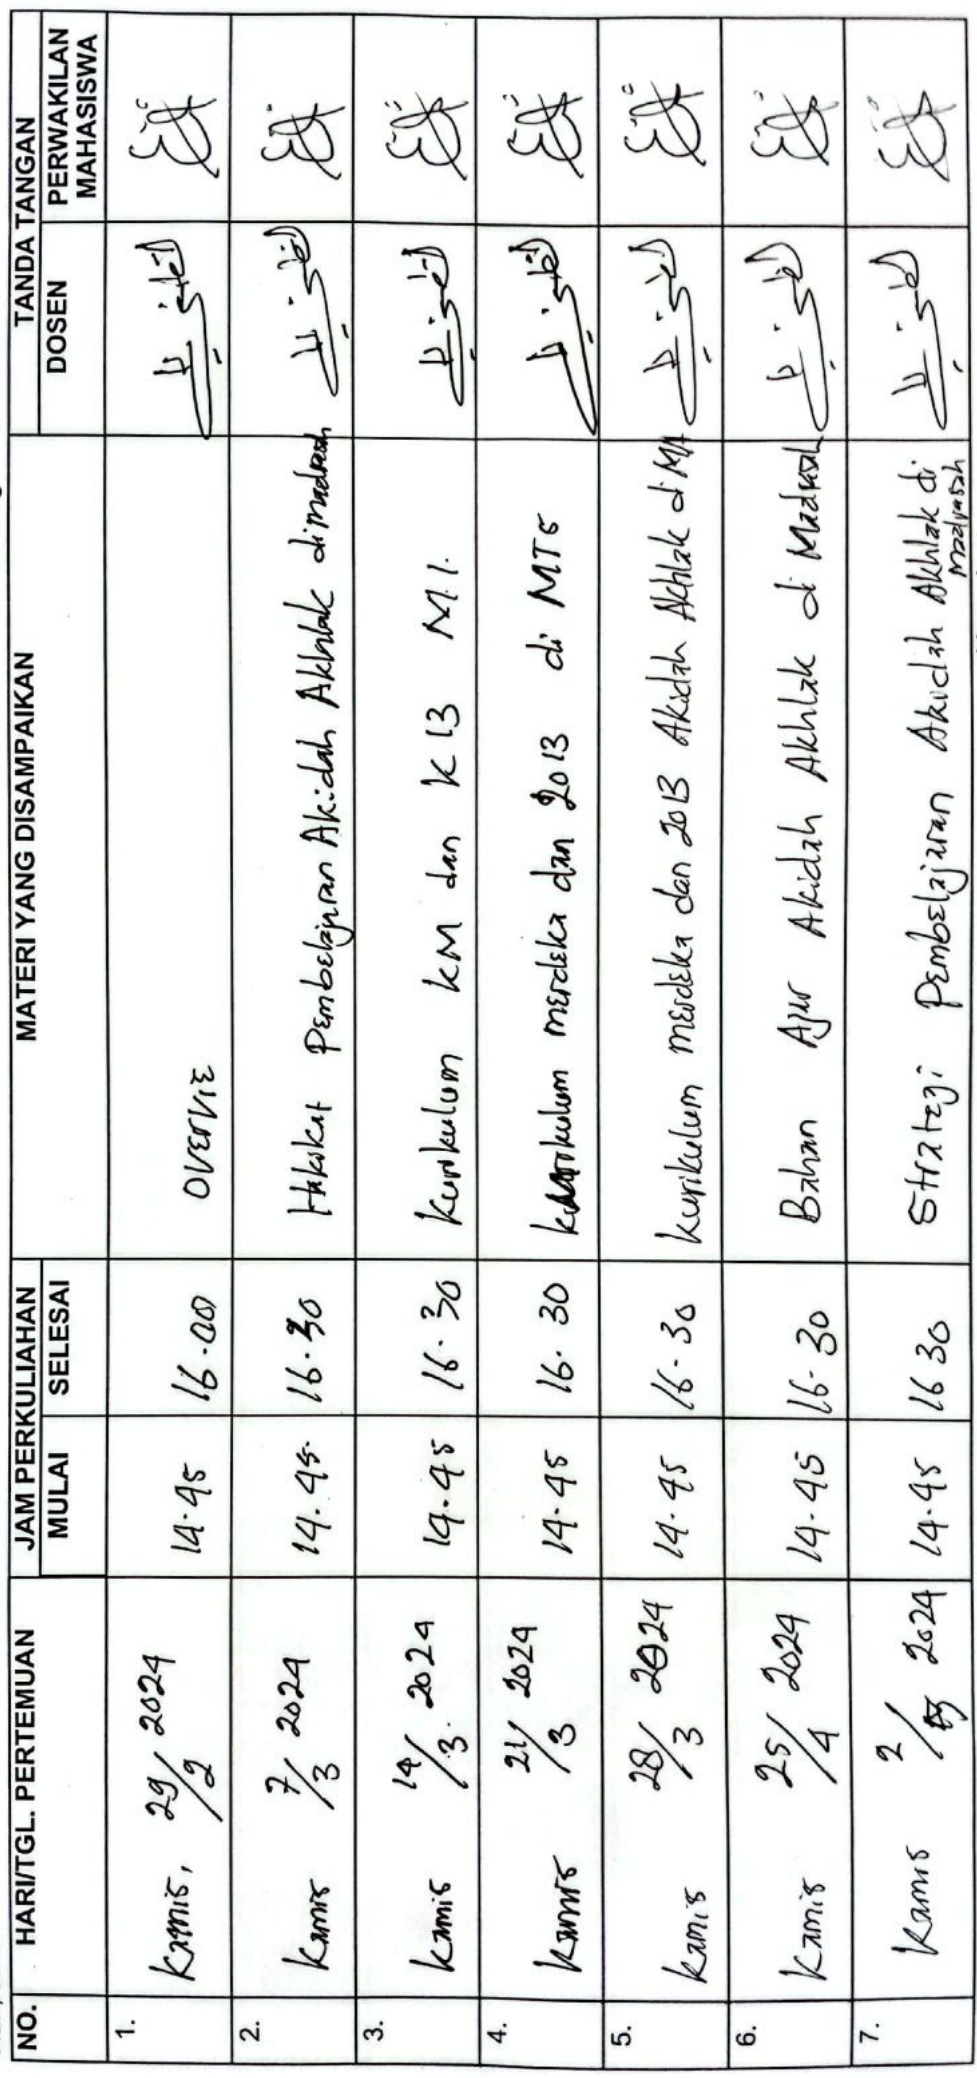 NO. HARI/TGL. PERTEMUAN JAM PERKULIAHAN MATERI YANG DISAMPAIKAN TANDA TANGAN
MULAI SELESAI DOSEN PERWAKILAN MAHASISWA
1. Kamis, 29/2 2024 14.45 16.00 Overvie
2. Kamis 7/3 2024 14.45. 16.30 Hakikat Pembelajaran Akidah Akhlak di madrasah
3. Kamis 14/3 2024 14.45 16.30 Kurikulum KM dan K13 M.I.
4. Kamis 21/3 2024 14.45 16.30 Kurikulum merdeka dan 2013 di MTs
5. Kamis 28/3 2024 14.45 16.30 Kurikulum merdeka dan 2013 Akidah Akhlak di MA
6. Kamis 25/4 2024 14.45 16.30 Bahan Ajar Akidah Akhlak di Madrasah
7. Kamis 2/5 2024 14.45 16 30 Strategi Pembelajaran Akidah Akhlak di
Madrasah